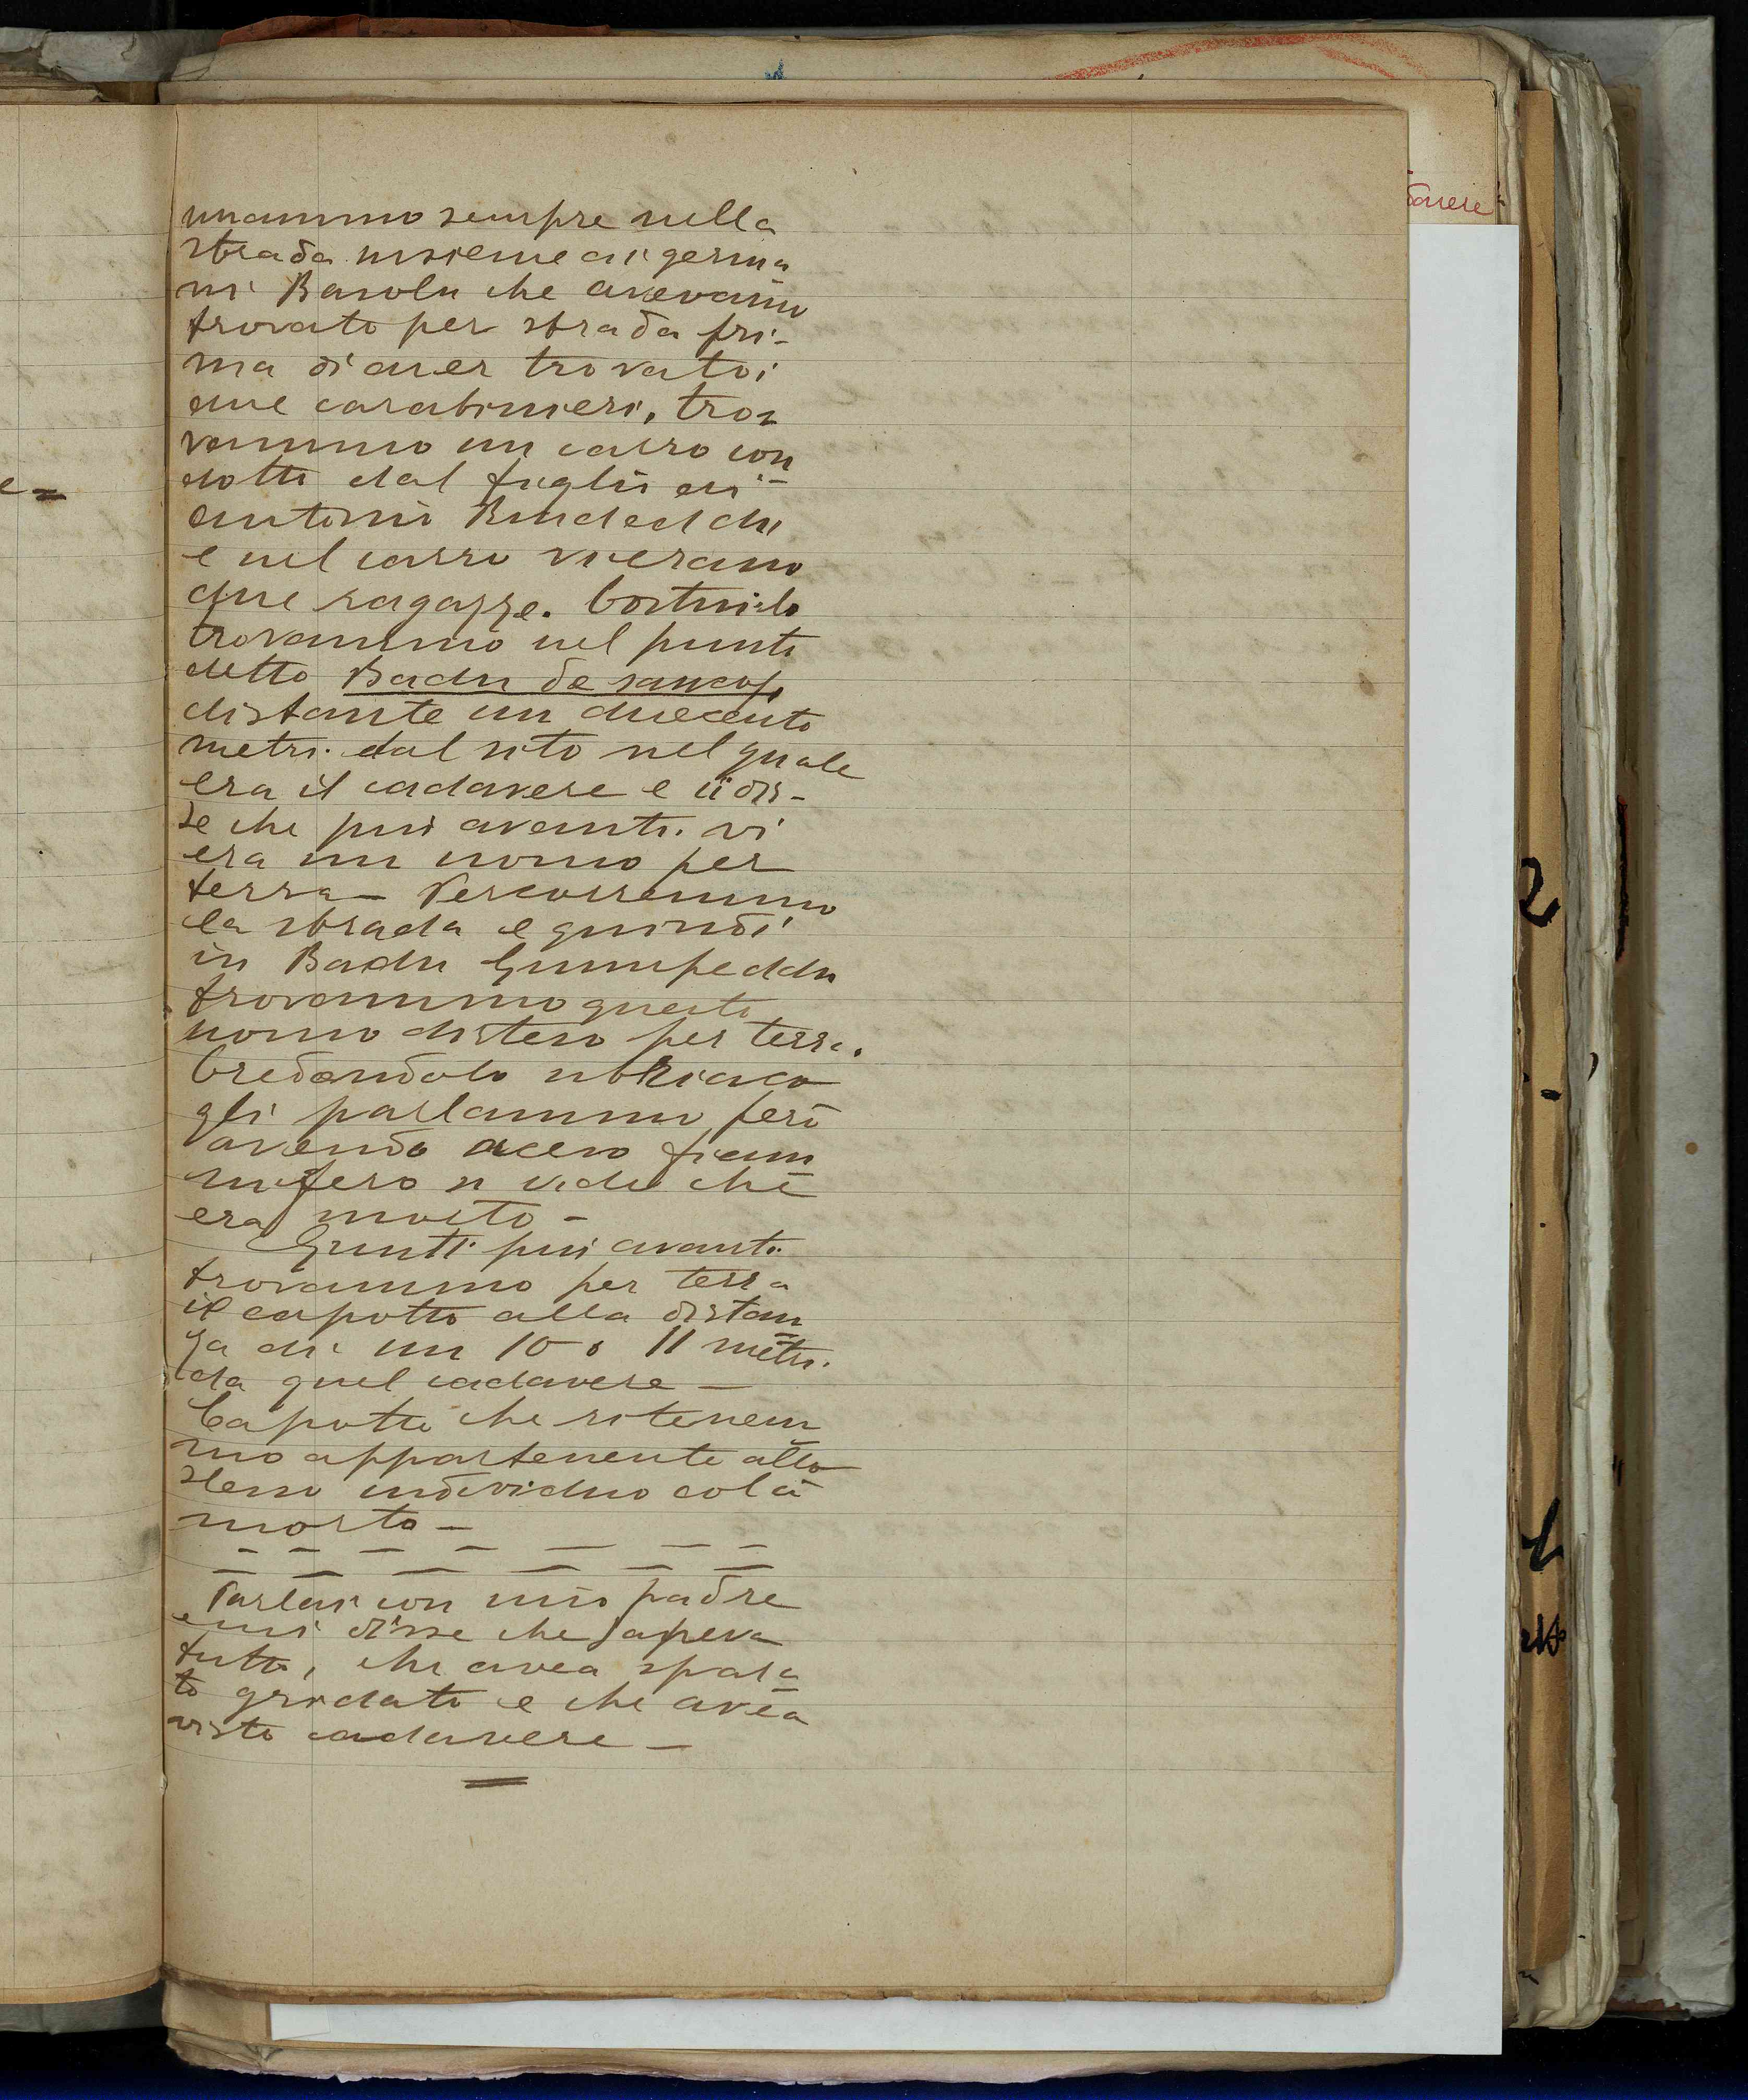 nammo sempre nella
strada insieme ai germa
ni Barolu che avevamo
trovato per strada pri-
ma di aver trovato i
due carabinieri, tro=
vammo un carro con
dotto dal figlio di
Antonio
e nel carro vi erano
due ragazze. Costui lo
trovammo nel punto
detto Badu de
distante un duecento
metri dal sito nel quale
era il cadavere e ci dis-
se che più avanti vi
era un uomo per
terra - Percorremmo
la strada e quindi
in Badu
trovammo questo
uomo disteso per terra.
Credendolo ubriaco
gli parlammo però
avendo acceso fiam
mifero si vide che
era morto -
Giunti più avanti
trovammo per terra
il capotto alla distan
za di un 10 o 11 metri
da quel cadavere -
Capotto che ritenem
mo appartenente allo
stesso individuo colà
morto -
Parlai con mio padre
e mi disse che sapeva
tutto, che avea spara
to gridato e che avea
visto cadavere -
davere